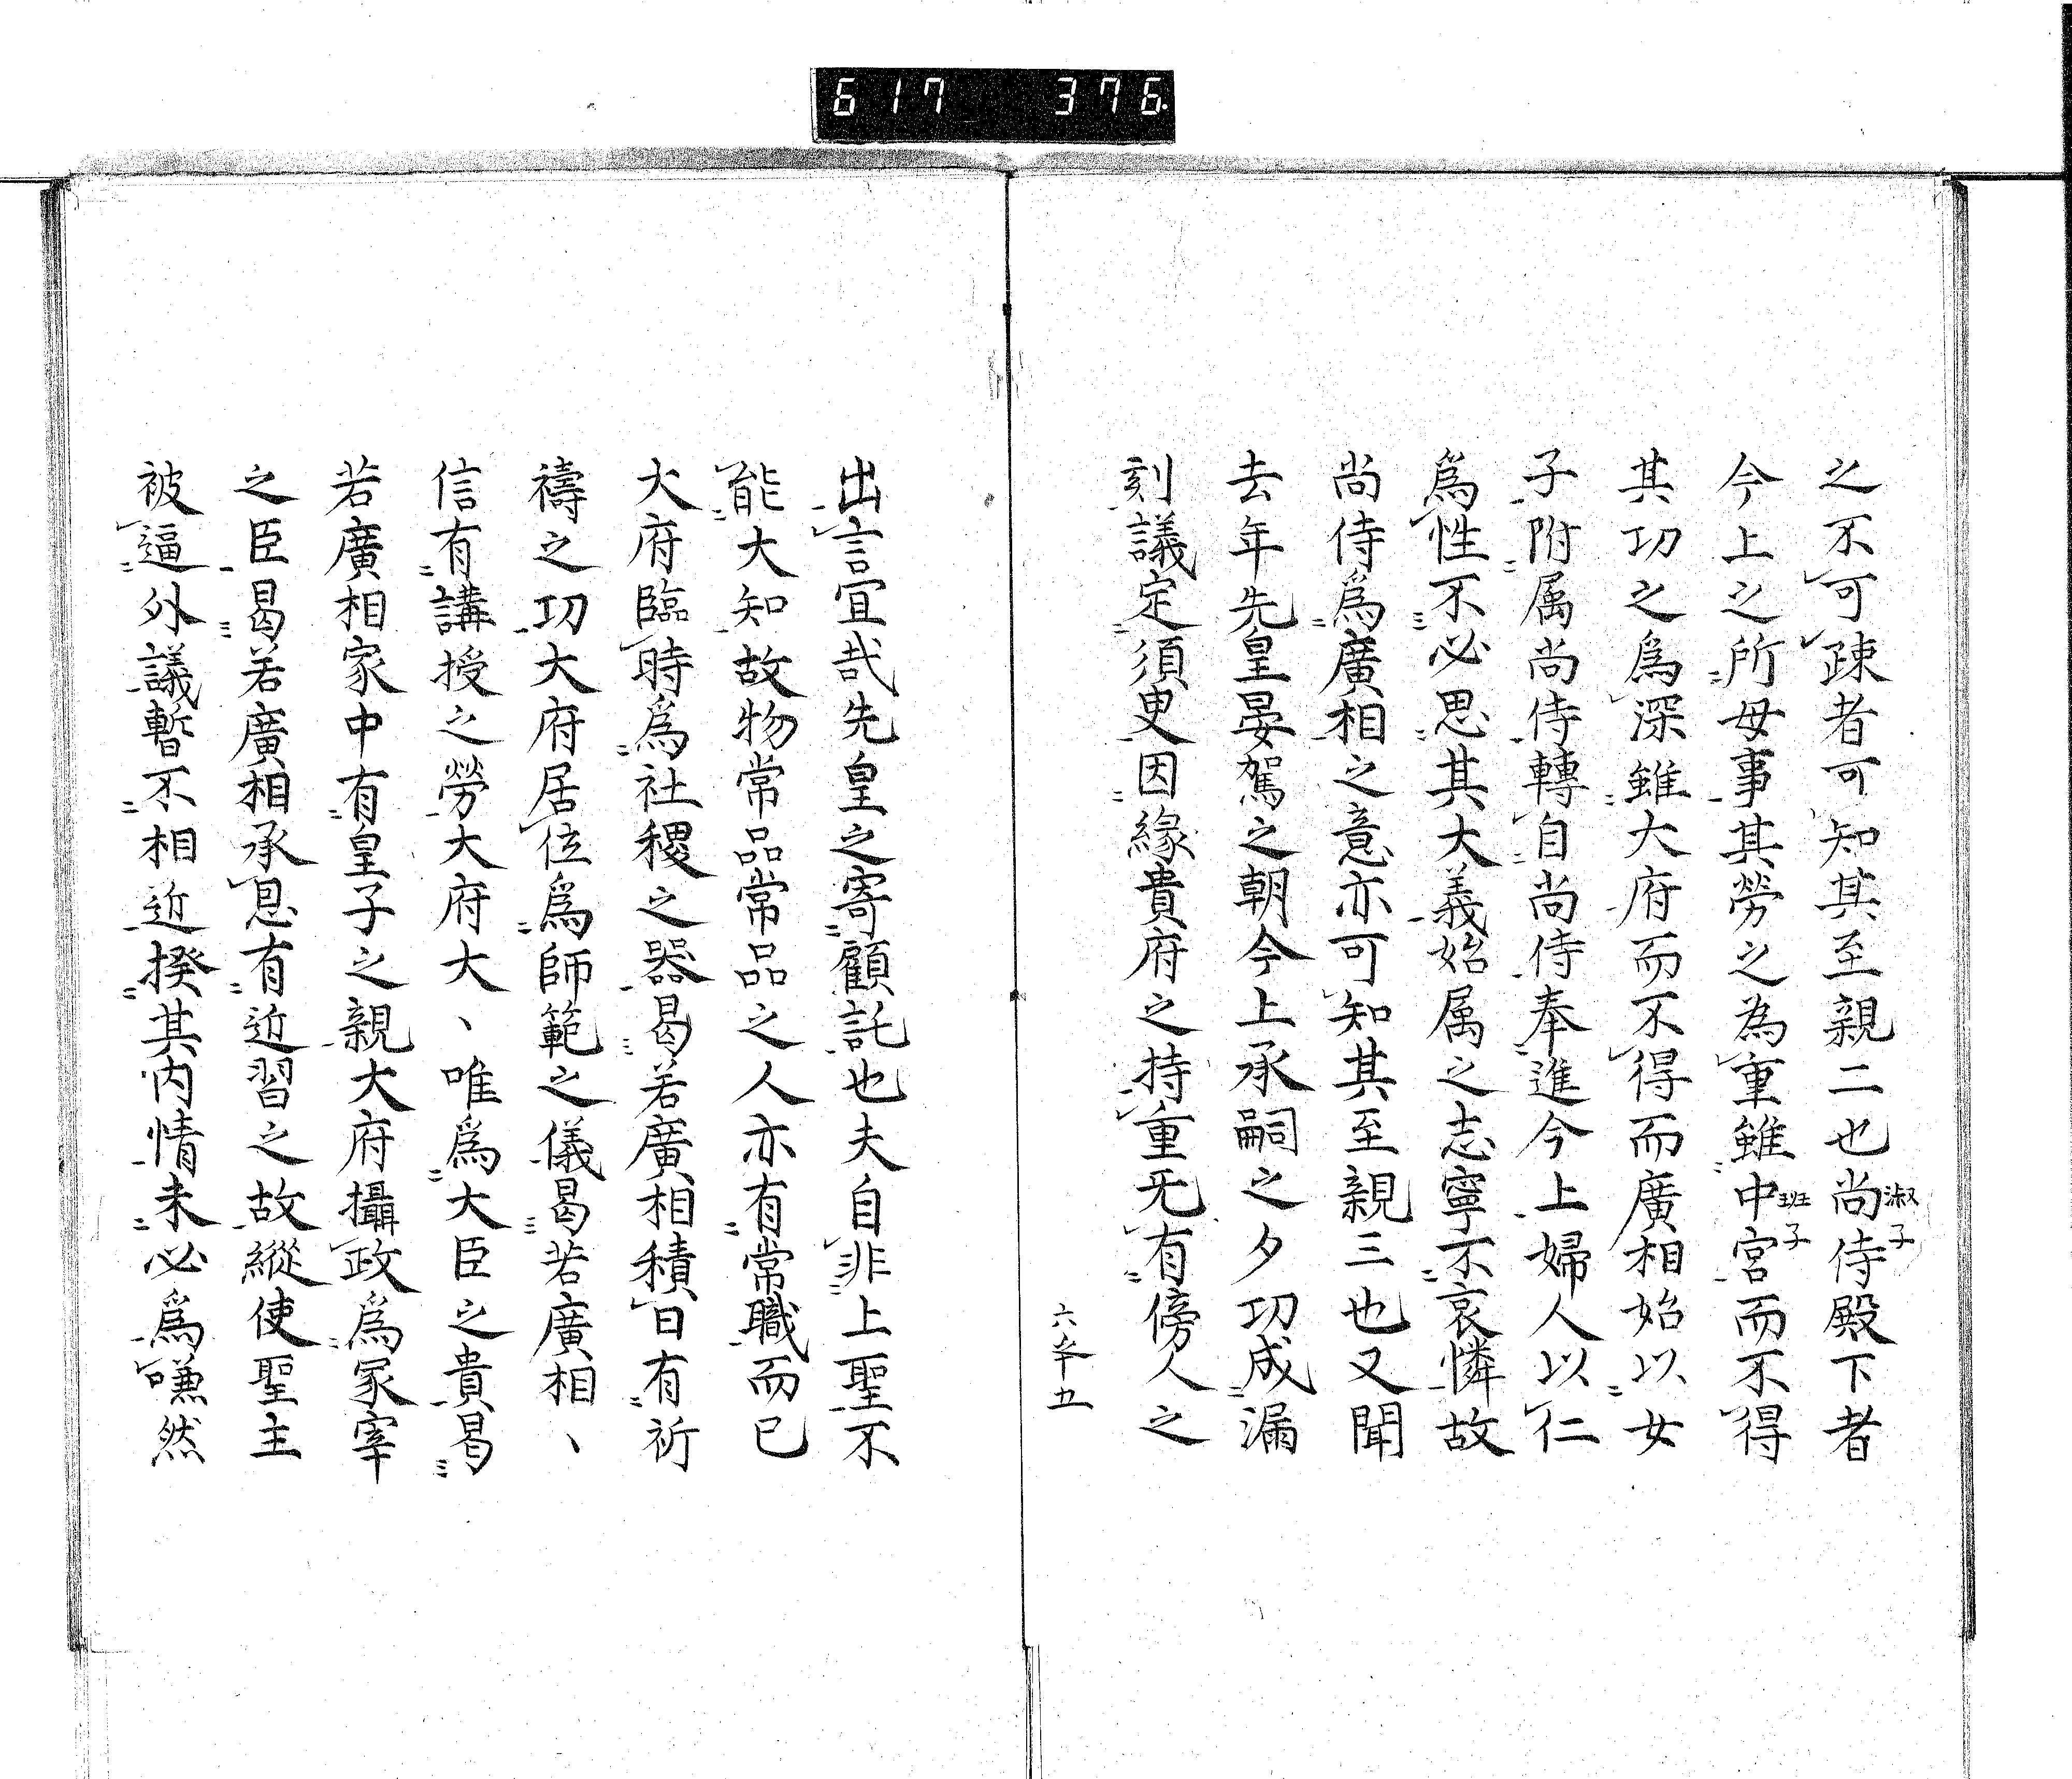 617 376.
之不可疎者可知其至親二也尚侍殿下者
淑子
今上之所母事其勞之為重雖中宮而不得
班子
其功之爲深雖大府而不得而廣相始以女
子附属尚侍轉自尚侍奉進今上婦人以仁
爲性不必思其大義始属之志寧不哀憐故
尚侍爲廣相之意亦可知其至親三也又聞
去年先皇晏駕之朝今上承嗣之夕功成漏
刻議定須臾因緣貴府之持重无有傍人之
出言宜哉先皇之寄顧託也夫自非上聖不
能大知故物常品常品之人亦有常職而已
大府臨時爲社稷之器曷若廣相積日有祈
禱之功大府居位爲師範之儀曷若廣相、
信有講授之勞大府大、唯爲大臣之貴曷
若廣相家中有皇子之親大府攝政爲冢宰
之臣曷若廣相承恩有近習之故縱使聖主
被逼外議暫不相近揆其内情未必爲嗛然